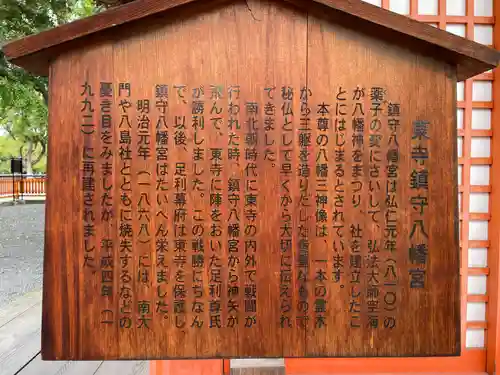 東寺鎮守八幡宮
鎮守八幡宮は弘仁元年（八一〇）の
薬子の変にさいして、弘法大師空海
が八幡神をまつり、社を建立したこ
とにはじまるとされています。
本尊の八幡三神像は、一本の霊木
から三躯を造りだした貴重なもので
秘仏として早くから大切に伝えられ
てきました。
南北朝時代に東寺の内外で戦闘が
行われた時、鎮守八幡宮から神矢が
飛んで、東寺に陣をおいた足利尊氏
が勝利しました。この戦勝にちなん
で、以後、足利幕府は東寺を保護し、
鎮守八幡宮はたいへん栄えました。
明治元年（一八六八）には、南大
門や八島社とともに焼失するなどの
憂き目をみましたが、平成四年（一
九九二）に再建されました。